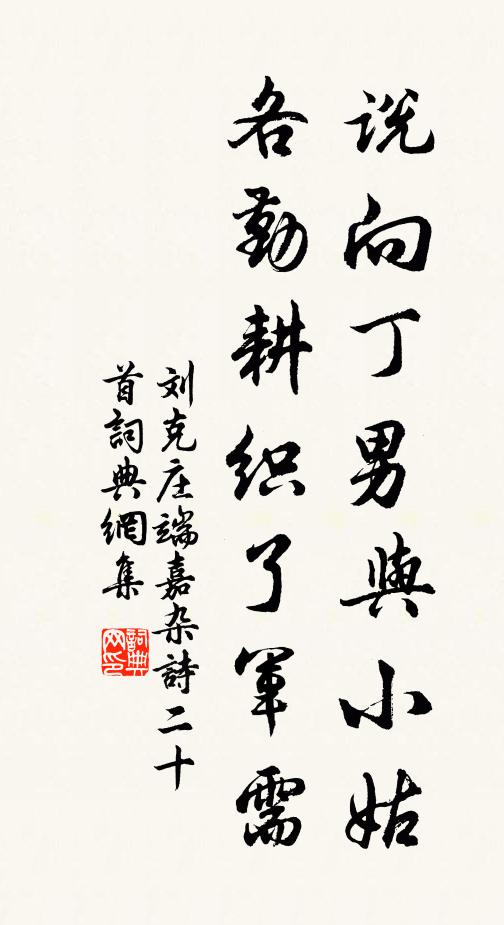 说向丁男與小姑
各勤耕织了军需
刘克庄端嘉杂詩二十
首詞典網集
詞典
网印